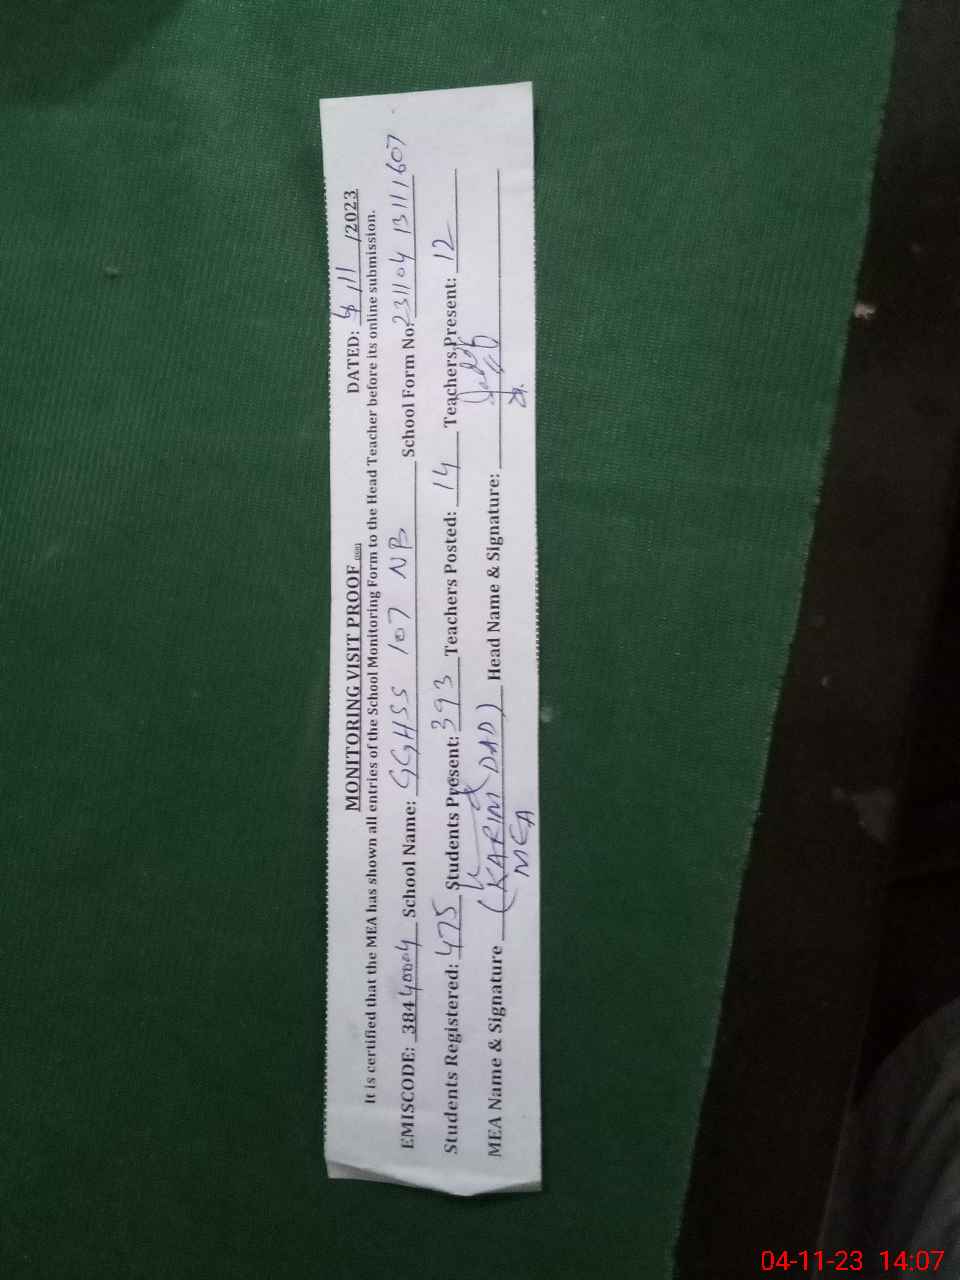 MONITORING VISIT PROOF DATED: 4/11/2023
It is certified that the MEA has shown all entries of the School Monitoring Form to the Head Teacher before its online submission.
EMISCODE: 38440004 School Name: GGHSS 107 NB School Form No: 231104 13111607
Students Registered: 475 Students Present: 393 Teachers Posted: 14 Teachers Present: 12
MEA Name & Signature (KARIM DAD) Head Name & Signature:
MEA
04-11-23 14:07